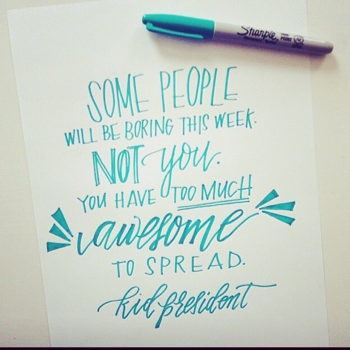 Sharpie
SOME PEOPLE
WILL BE BORING THIS WEEK.
NOT you.
YOU HAVE TOO MUCH
awesome
TO SPREAD.
kid president